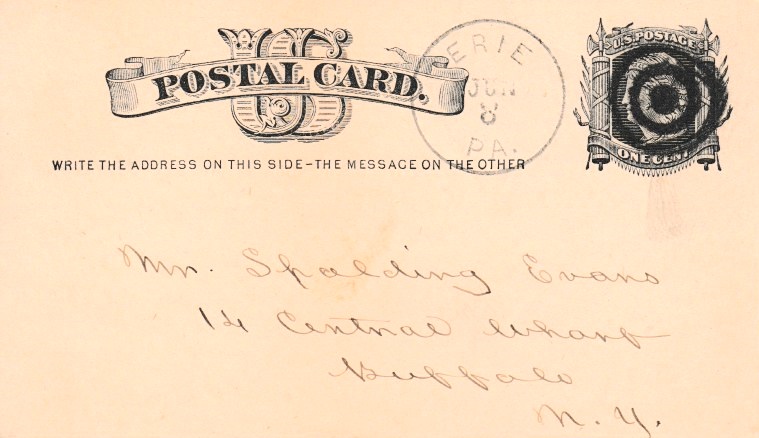 US
POSTAL CARD.
WRITE THE ADDRESS ON THIS SIDE – THE MESSAGE ON THE OTHER
ERIE
JUN
8
PA.
U.S. POSTAGE
ONE CENT
Mr. Spalding Evans
14 Central Wharf
Buffalo
N. Y.